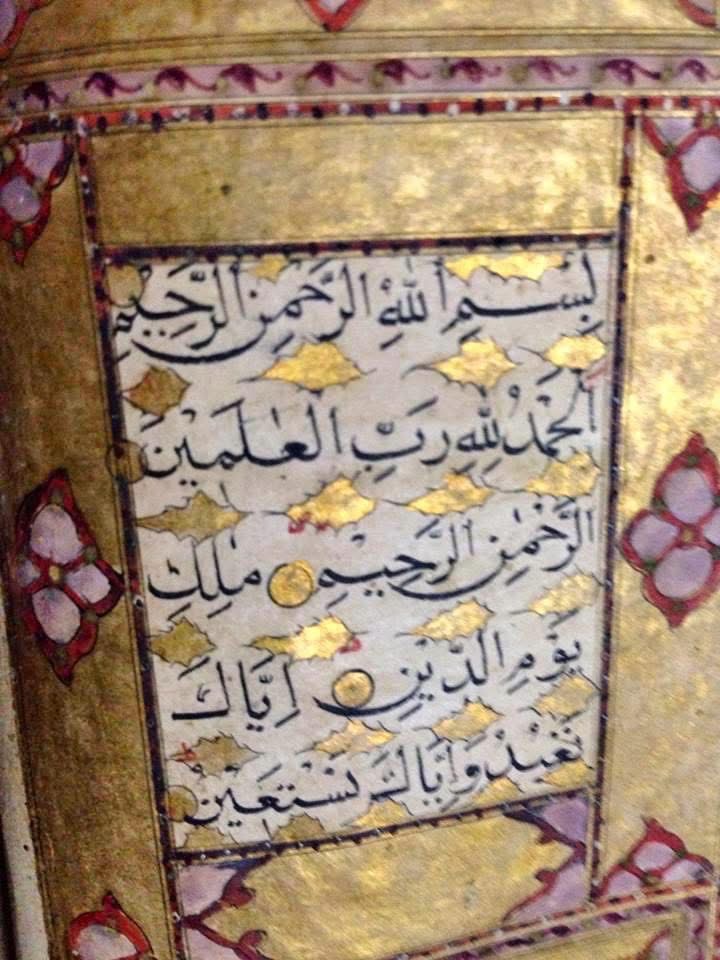 بِسْمِ اللّٰهِ الرَّحْمٰنِ الرَّحِيْمِ
اَلْحَمْدُ لِلّٰهِ رَبِّ الْعٰلَمِيْنَ
الرَّحْمٰنِ الرَّحِيْمِ مٰلِكِ
يَوْمِ الدِّيْنِ اِيَّاكَ
نَعْبُدُ وَاِيَّاكَ نَسْتَعِيْنُ